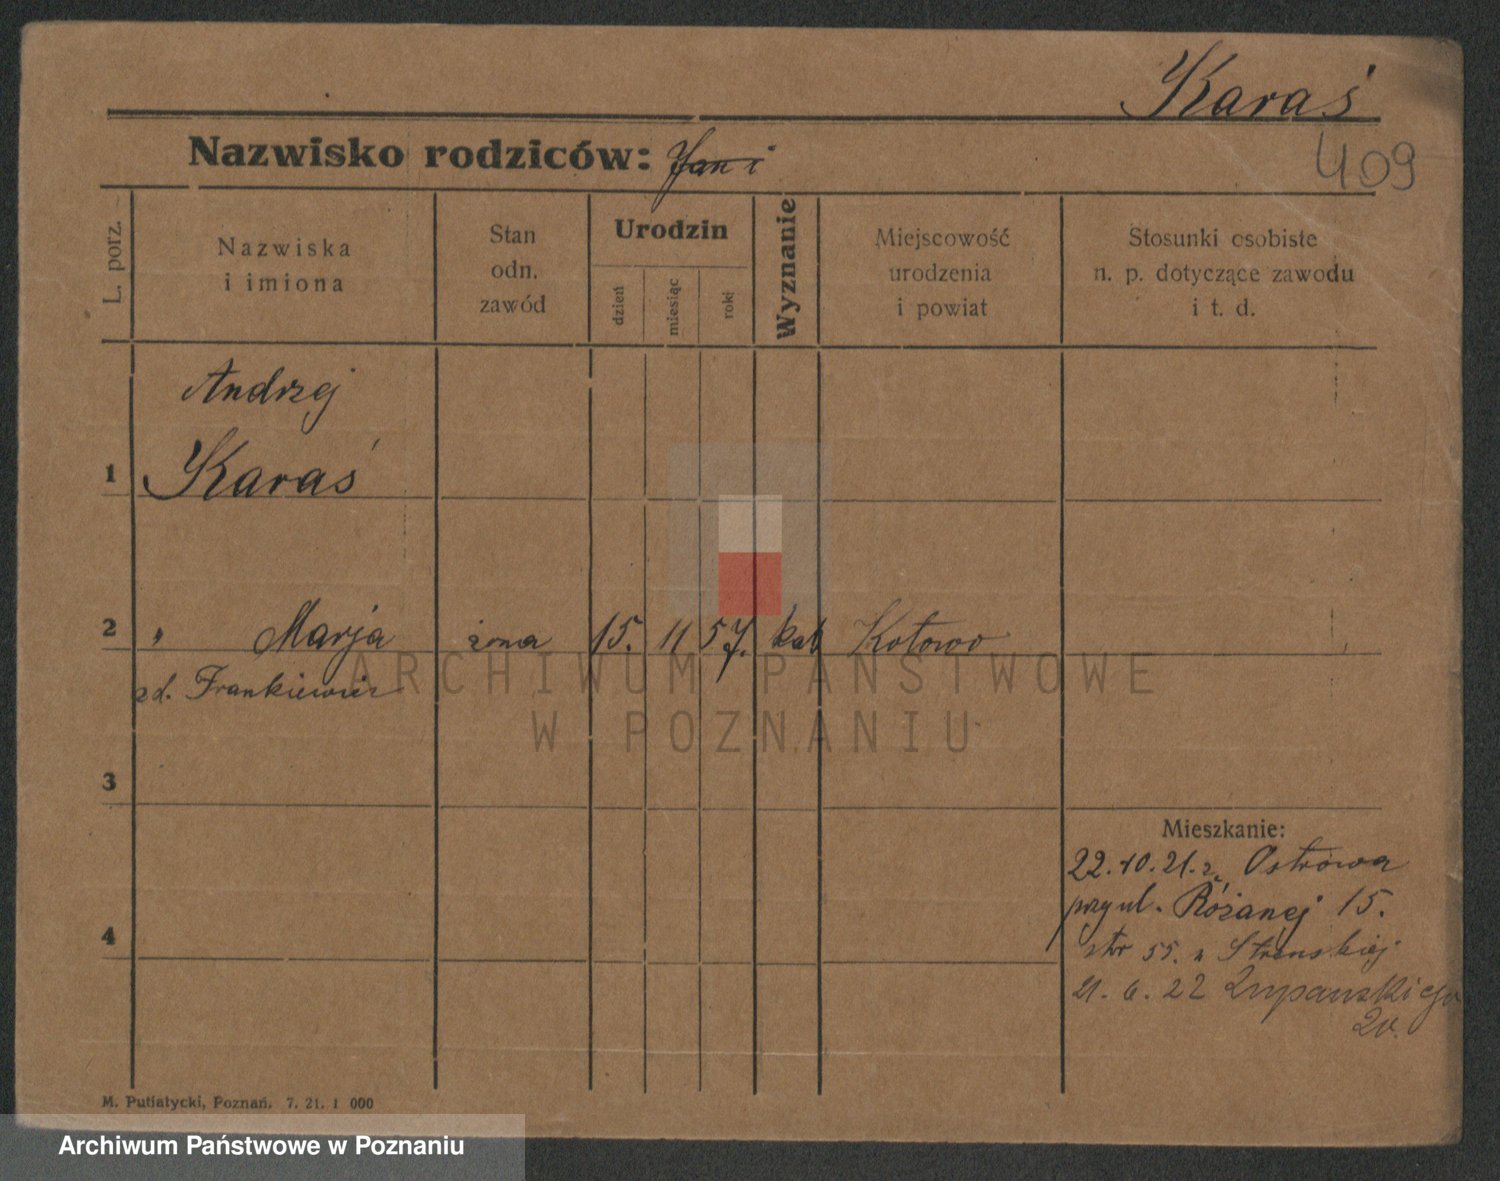 Karaś
409
Nazwisko rodziców: Jan i
L. porz.
Nazwiska
i imiona
Stan
odn.
zawód
Urodzin
dzień
miesiąc
rok
Wyznanie
Miejscowość
urodzenia
i powiat
Stosunki osobiste
n. p. dotyczące zawodu
i t. d.
Andrzej
1 Karaś
2 " Marja żona 15. 11 57. kat Kotowo
zd. Frankiewicz
ARCHIWUM PAŃSTWOWE
W POZNANIU
3
Mieszkanie:
22.10.21.r. Ostrowa
przy ul. Różanej 15.
4
str 55. u Stronskiej
21. 6. 22 Żupańskiego
20.
M. Putiatycki, Poznań. 7. 21. 1 000
Archiwum Państwowe w Poznaniu